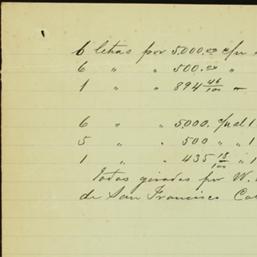 6 letras por 5,000.00 c/u
6 " " 500.00 "
1 " " 894 46/100 —
6 " " 5,000. c/u al 1
5 " " 500 " " 1
1 " " 435 18/100 " 1
Todas giradas por W.
de San Francisco Cal